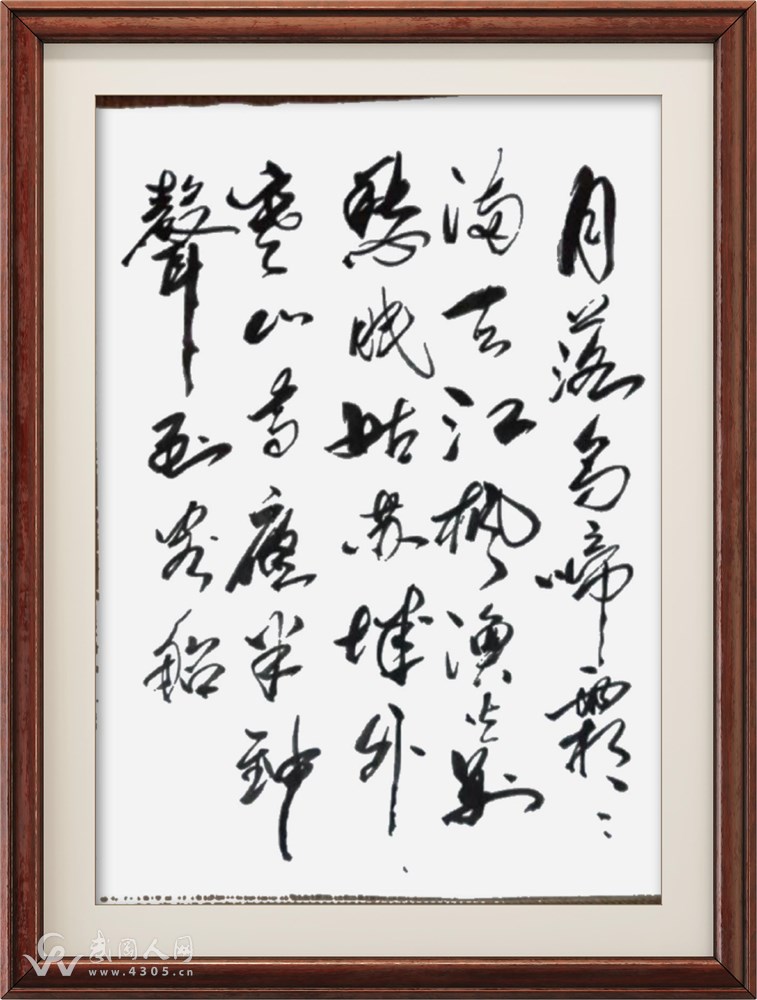 月落乌啼霜
满天江枫渔火对
愁眠姑苏城外
寒山寺夜半钟
聲到客船
武冈人网
www.4305.cn